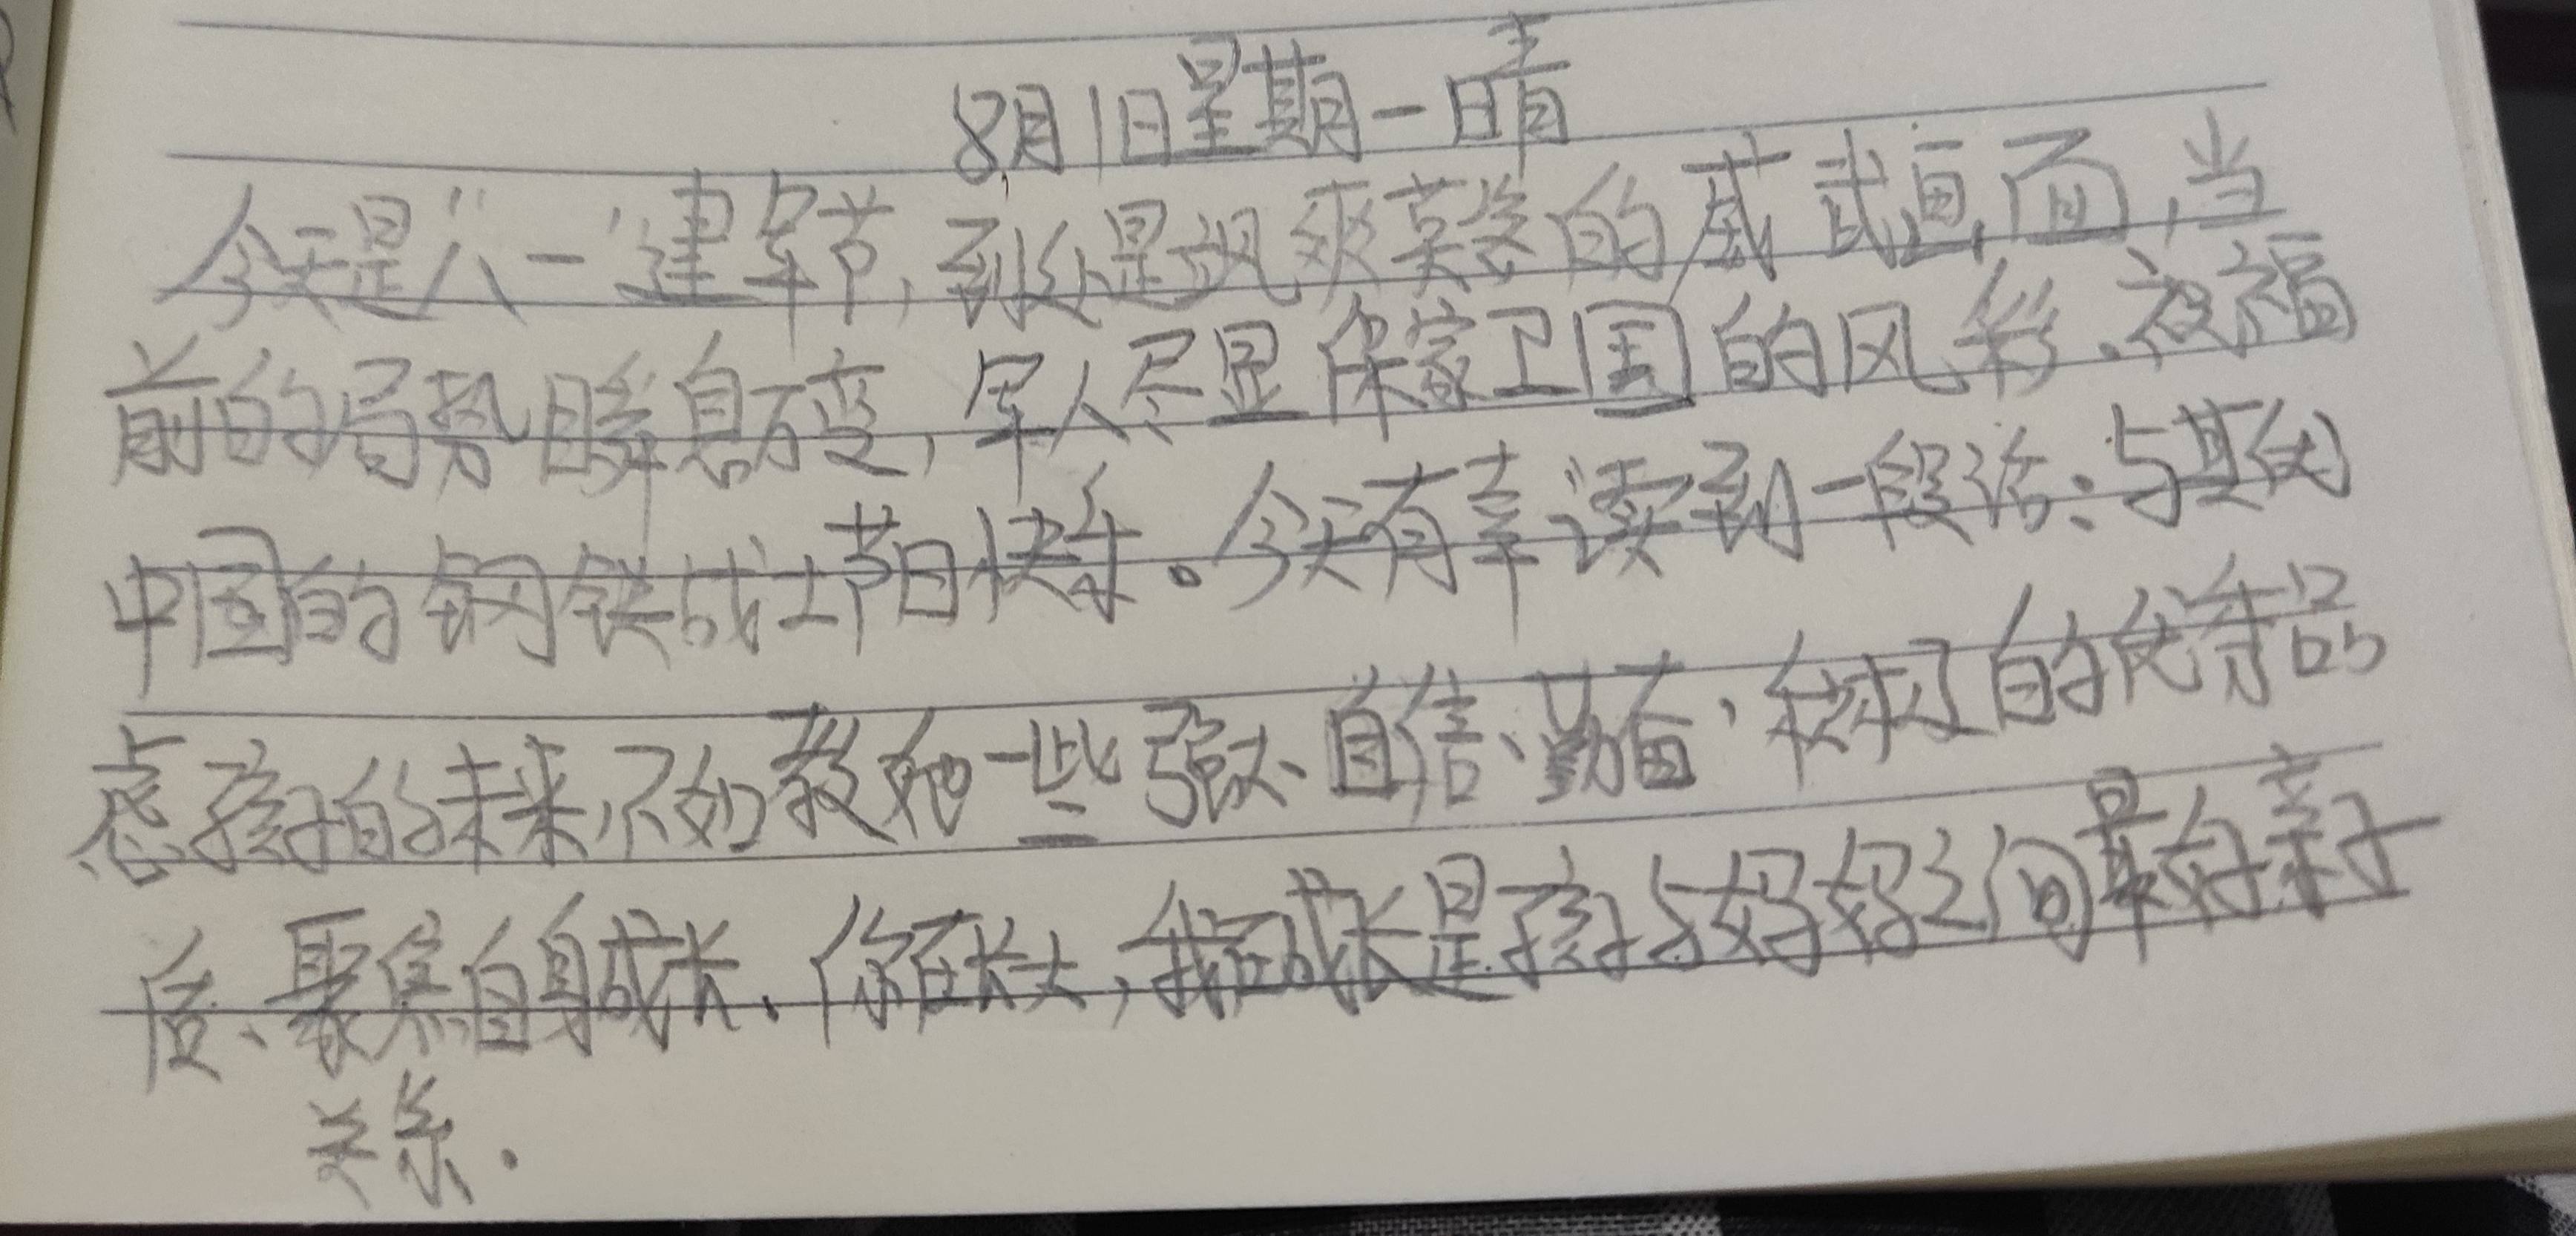 8月1日星期一晴
今天是“八一”建军节,到处是飒爽英姿的威武画面,当
前的局势瞬息万变,军人尽显保家卫国的风彩.祝福
中国的钢铁战士节日快乐。今天有幸读到一段话:与其
虑孩子的未来,不如教她一些强大、自信、勤奋、的优秀品
质、聚焦自身成长.你在长大,我在成长是孩子与妈妈之间最好亲子
关系.